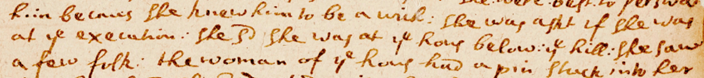 him becaus she knew him to be a wich: she was askt if she was
at ye execution: she sd she was at ye hous below: ye hill: she saw
a few folk: the woman of ye hous had a pin stuck into her